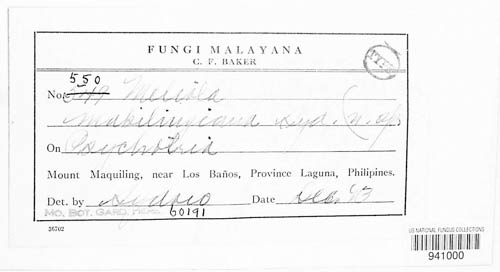 FUNGI MALAYANA
C. F. BAKER
550
No. 549 Meliola
Makilingiana Syd. (n. sp.
On Psychotria
Mount Maquiling, near Los Baños, Province Laguna, Philipines.
Det. by Sydow Date Dec. '13
MO. BOT. GARD. HERB. 60191
36702
US NATIONAL FUNGUS COLLECTIONS
941000